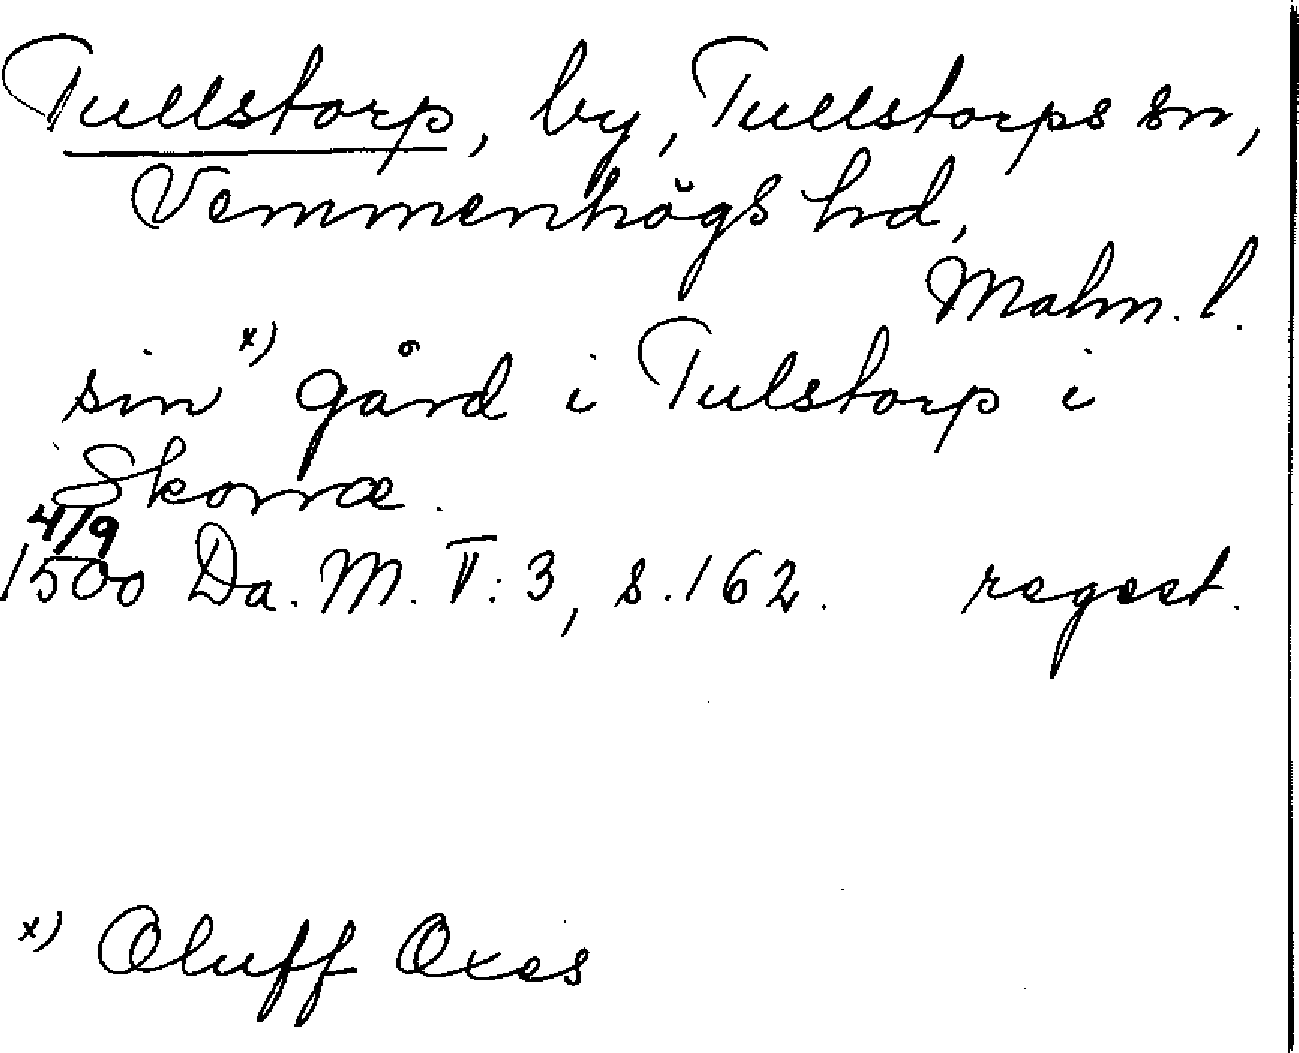 Tullstorp, by, Tullstorps sn,
Vemmenhögs hd,
Malm. l.
sin x) gård i Tulstorp i
Skonræ.
4/9
1500 Da. M. V: 3, s. 162. regest.
x) Oluff Oxes